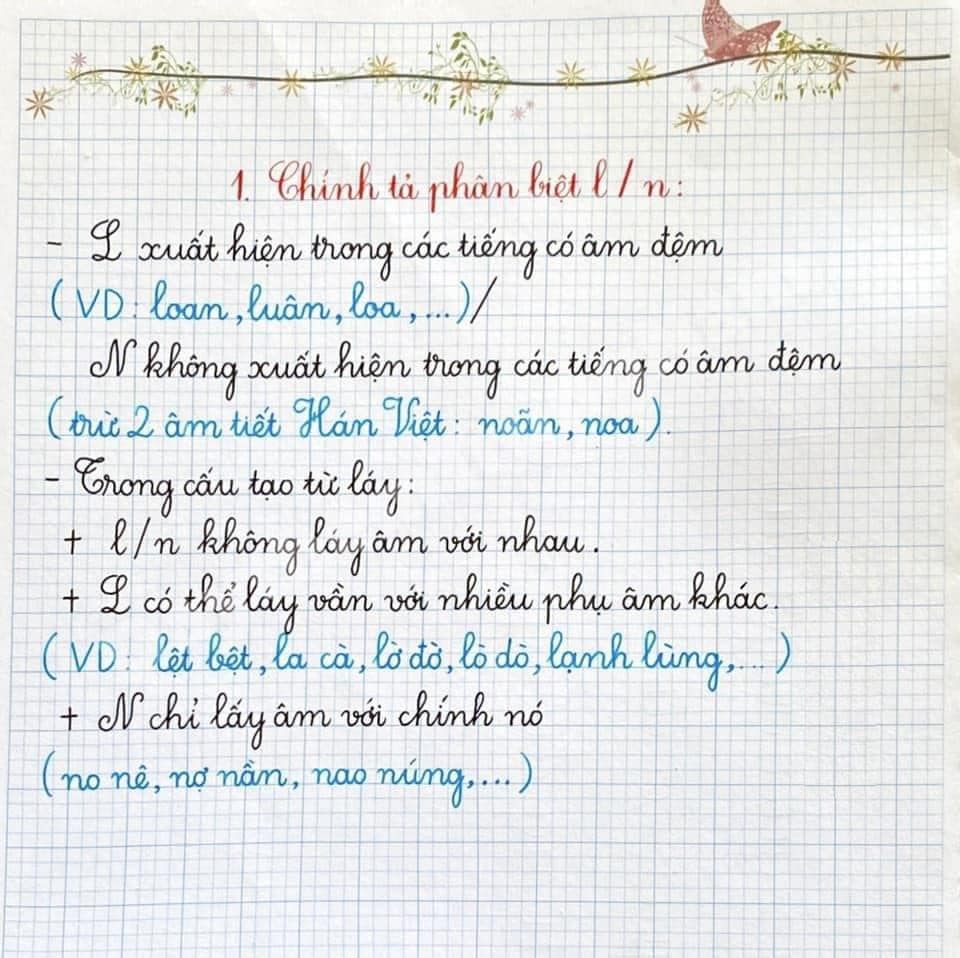 1. Chính tả phân biệt l / n:
- L xuất hiện trong các tiếng có âm đệm
(VD: loan, luân, loa, ...)/
N không xuất hiện trong các tiếng có âm đệm
(trừ 2 âm tiết Hán Việt: noãn, noa).
- Trong cấu tạo từ láy:
+ l/n không láy âm với nhau.
+ L có thể láy vần với nhiều phụ âm khác.
(VD: lệt bệt, la cà, lờ đờ, lò dò, lạnh lùng,...)
+ N chỉ lấy âm với chính nó
(no nê, nợ nần, nao núng,...)